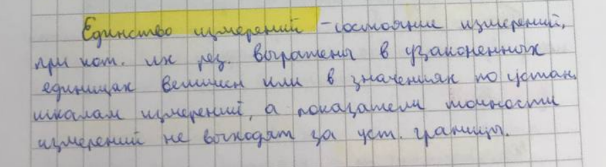 Единство измерений - состояние измерений,
при кот. их рез. выражены в узаконенных
единицах величин или в значениях по устан.
шкалам измерений, а показатели точности
измерений не выходят за уст. границы.